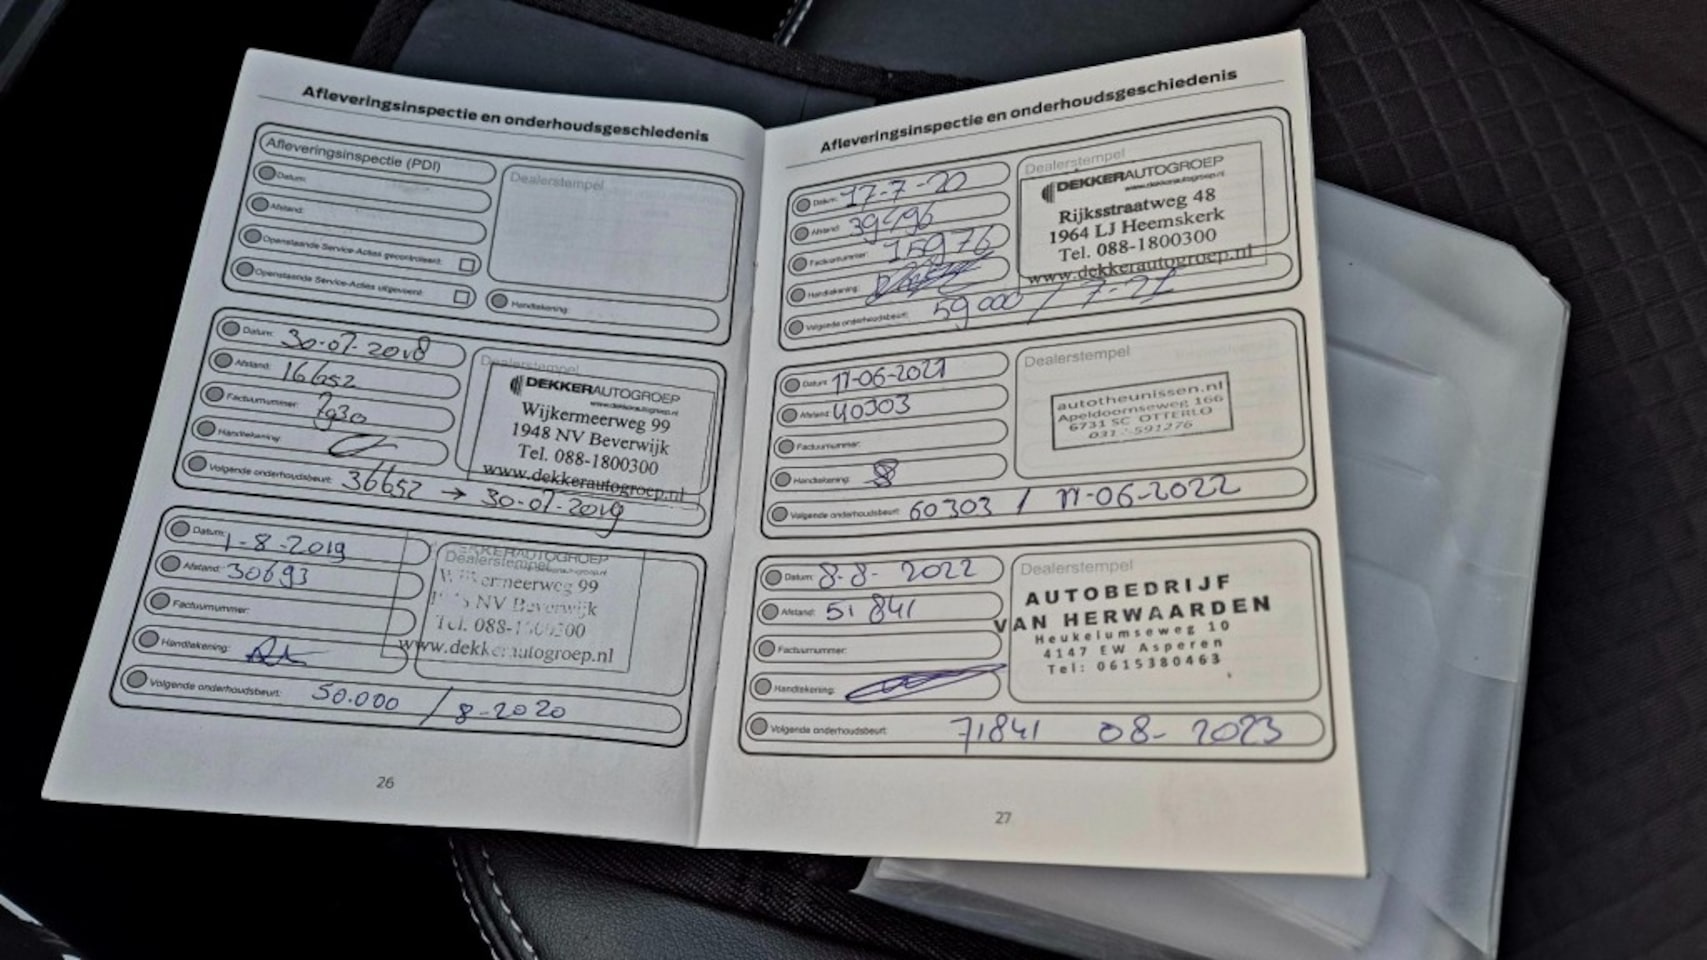 Afleveringsinspectie en onderhoudsgeschiedenis
Afleveringsinspectie (PDI)
Datum:
Afstand:
Openstaande Service-Acties gecontroleerd:
Openstaande Service-Acties uitgevoerd:
Dealerstempel
Handtekening:
Datum: 30-07-2018
Afstand: 16652
Factuurnummer: 7930
Handtekening:
Volgende onderhoudsbeurt: 36652 → 30-07-2019
Dealerstempel
DEKKERAUTOGROEP
www.dekkerautogroep.nl
Wijkermeerweg 99
1948 NV Beverwijk
Tel. 088-1800300
www.dekkerautogroep.nl
Datum: 1-8-2019
Afstand: 30693
Factuurnummer:
Handtekening:
Volgende onderhoudsbeurt: 50.000 / 8-2020
DEKKERAUTOGROEP
Dealerstempel
Wijkermeerweg 99
NV Beverwijk
Tel. 088-1800300
www.dekkerautogroep.nl
26
Afleveringsinspectie en onderhoudsgeschiedenis
Datum: 17-7-20
Afstand: 39496
Factuurnummer: 15976
Handtekening:
Volgende onderhoudsbeurt: 59000 / 7-21
Dealerstempel
DEKKERAUTOGROEP
www.dekkerautogroep.nl
Rijksstraatweg 48
1964 LJ Heemskerk
Tel. 088-1800300
www.dekkerautogroep.nl
Datum: 11-06-2021
Afstand: 40303
Factuurnummer:
Handtekening:
Volgende onderhoudsbeurt: 60303 / 11-06-2022
Dealerstempel
autotheunissen.nl
Apeldoornseweg 166
6731 SC OTTERLO
Datum: 8-8-2022
Afstand: 51841
Factuurnummer:
Handtekening:
Volgende onderhoudsbeurt: 71841 08-2023
Dealerstempel
AUTOBEDRIJF
VAN HERWAARDEN
Heukelumseweg 10
4147 EW Asperen
Tel: 0615380463
27